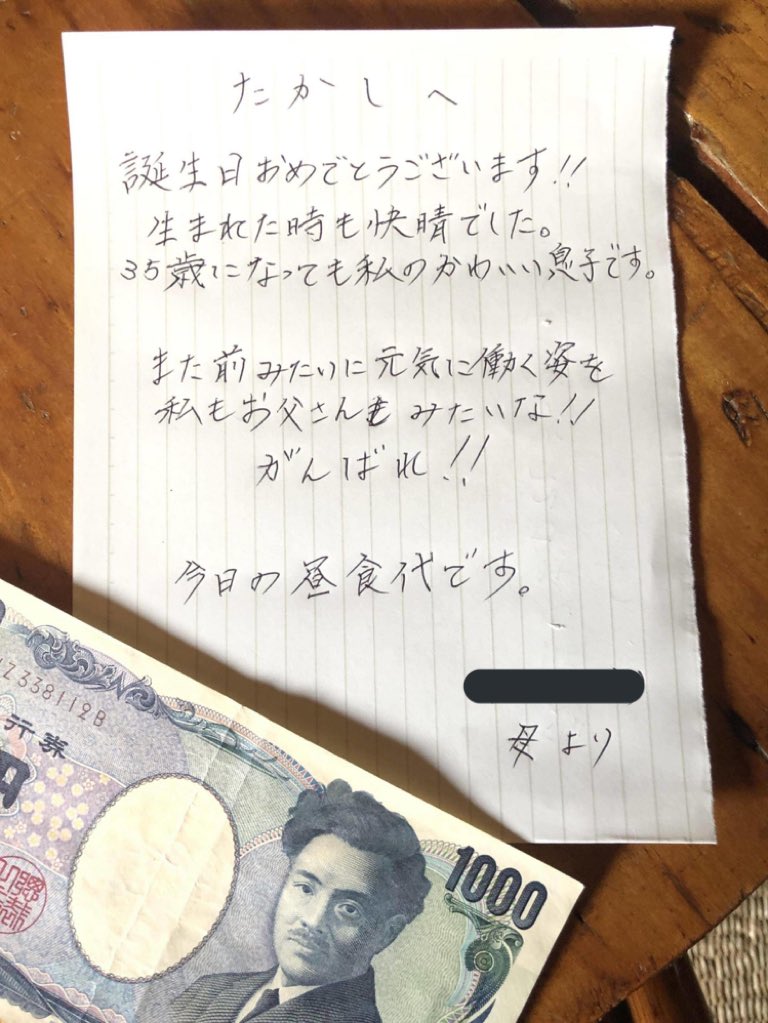 たかしへ
誕生日おめでとうございます!!
生まれた時も快晴でした。
35歳になっても私のかわいい息子です。
また前みたいに元気に働く姿を
私もお父さんもみたいな!!
がんばれ!!
今日の昼食代です。
母より
338112B
行券
円
1000